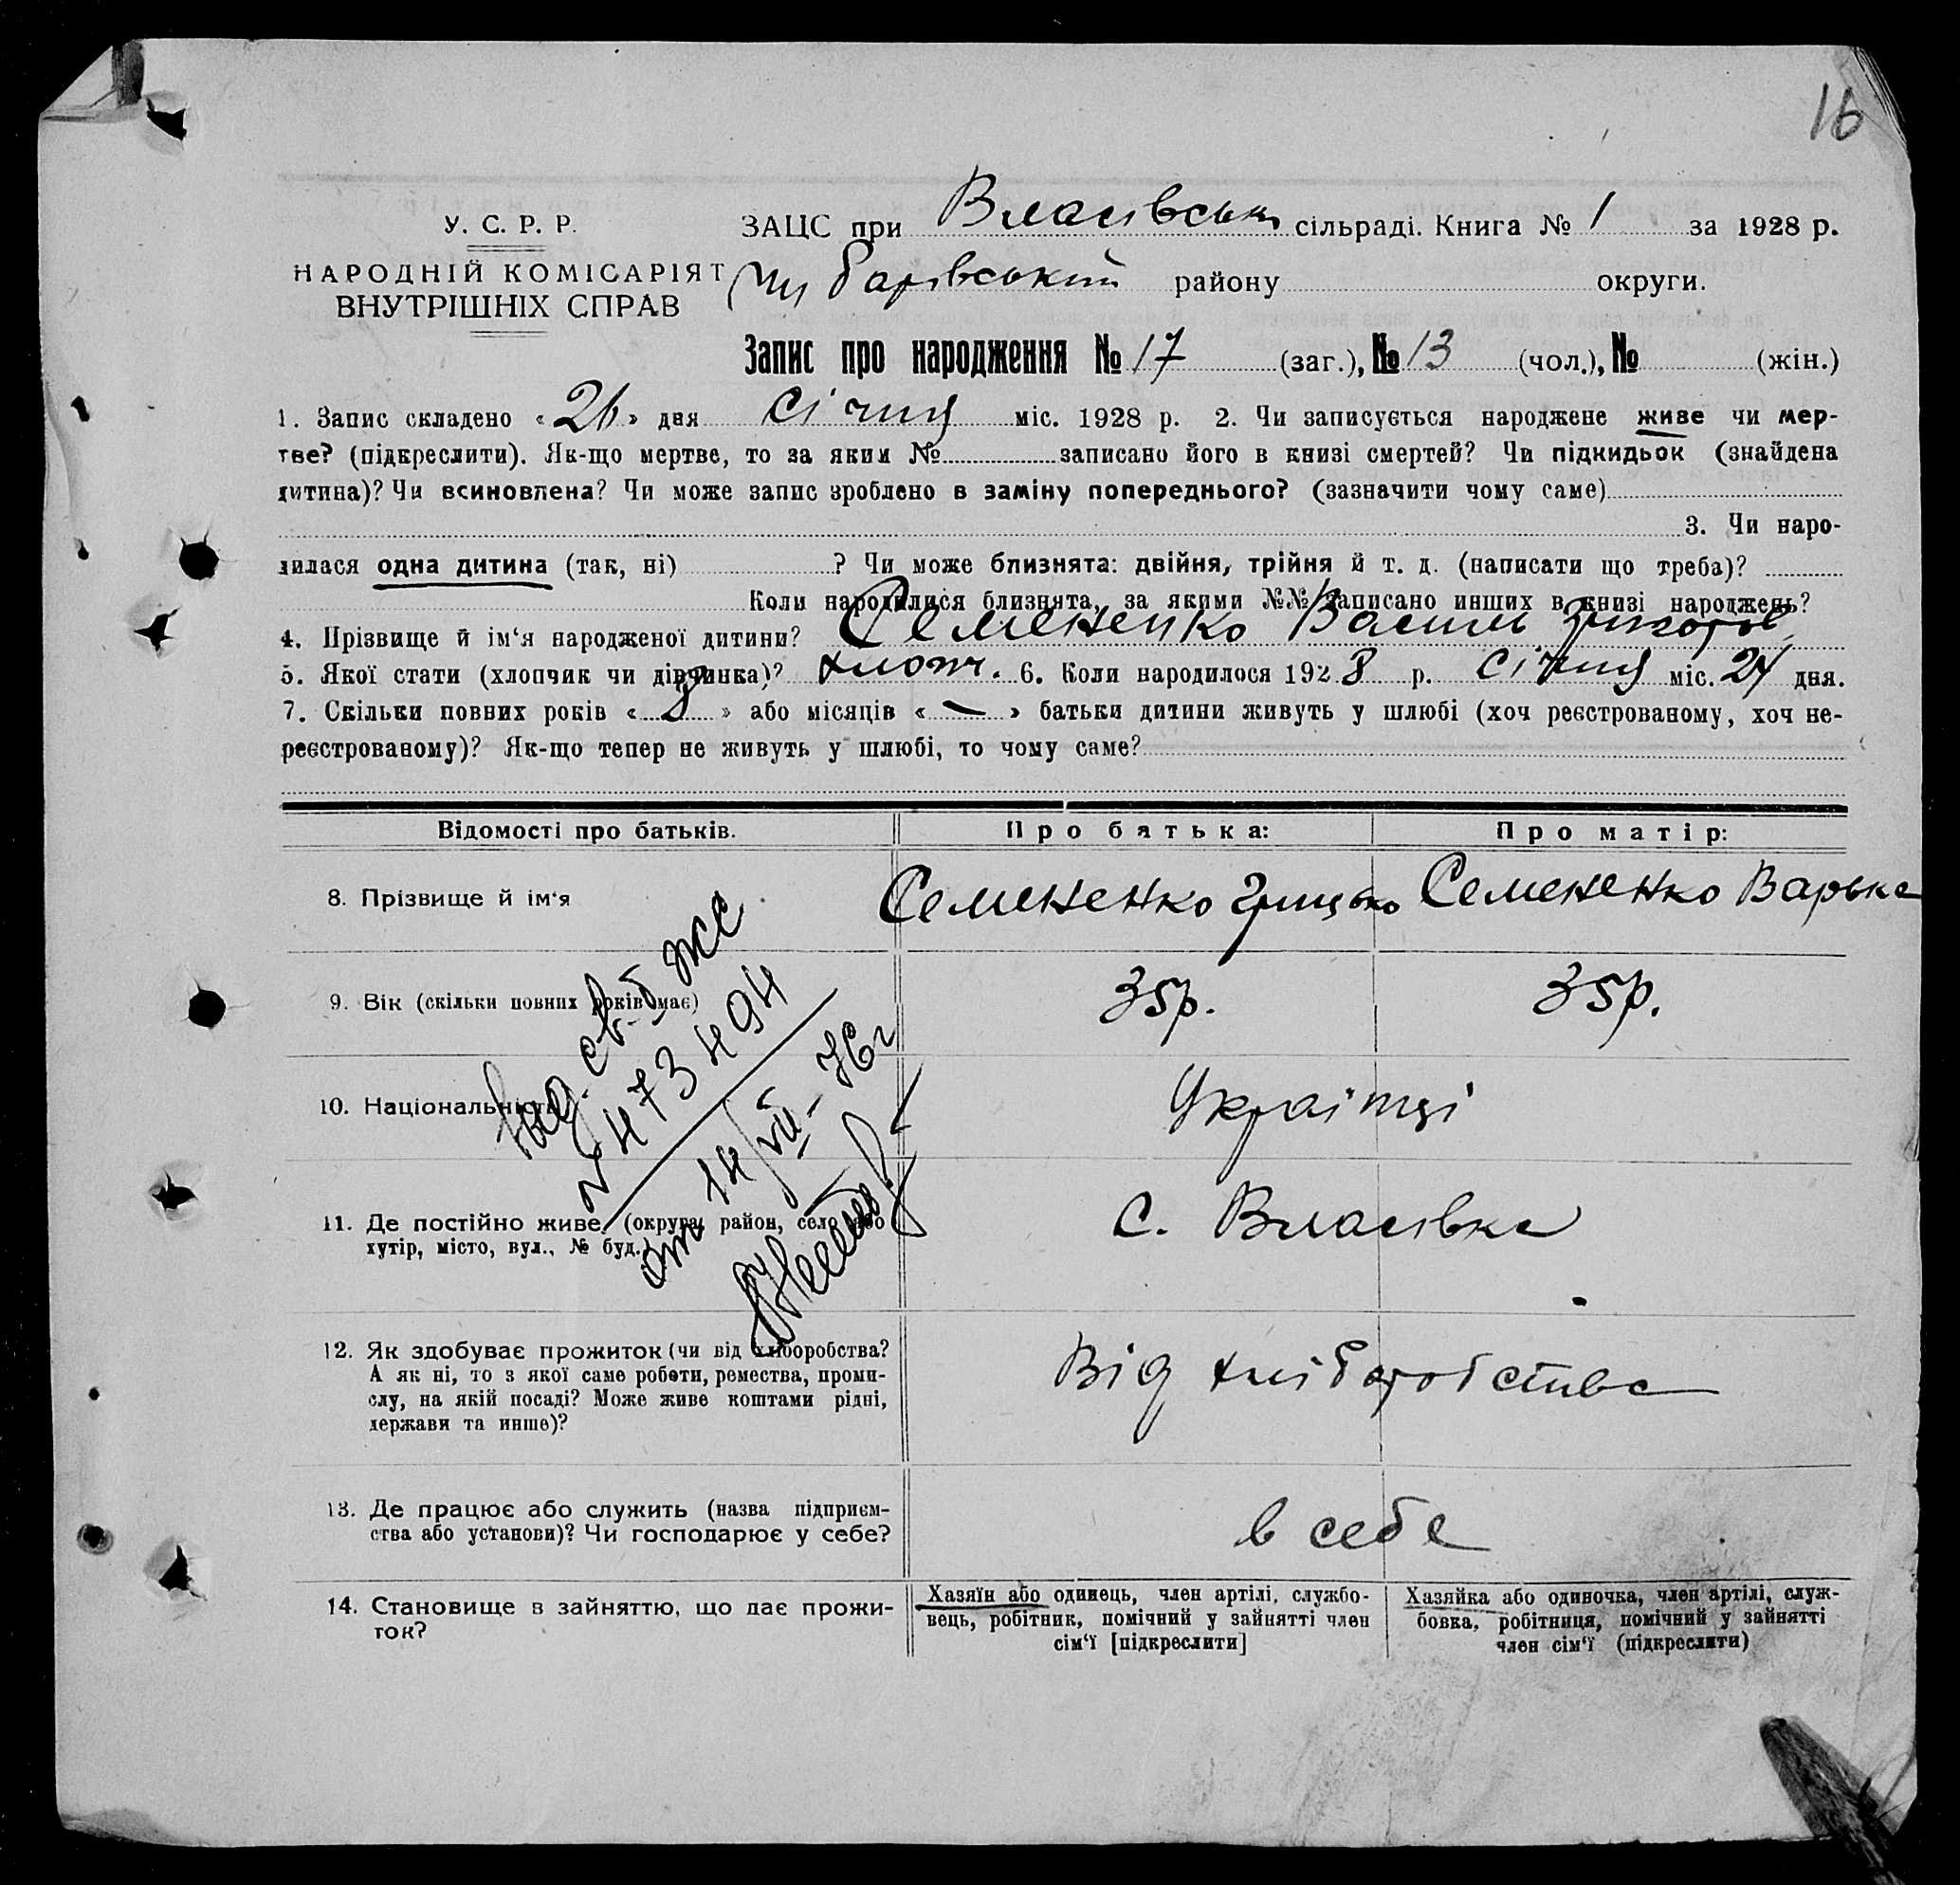 16
У. С. Р. Р.
НАРОДНІЙ КОМІСАРІЯТ
ВНУТРІШНІХ СПРАВ
ЗАЦС при Власівськ сільраді. Книга № 1 за 1928 р.
Чубарівський району округи.
Запис про народження № 17 (заг.), № 13 (чол.), № (жін.)
1. Запис складено «26» дня січня міс. 1928 р. 2. Чи записується народжене живе чи мер-
тве? (підкреслити). Як-що мертве, то за яким № записано його в книзі смертей? Чи підкидьок (знайдена
дитина)? Чи всиновлена? Чи може запис зроблено в заміну попереднього? (зазначити чому саме)
3. Чи наро-
дилася одна дитина (так, ні) ? Чи може близнята: двійня, трійня й т. д. (написати що треба)?
Коли народилися близнята, за якими №№ записано инших в книзі народжень?
4. Прізвище й ім‘я народженої дитини? Семененко Василь Григоров.
5. Якої стати (хлопчик чи дівчинка)? хлопч. 6. Коли народилося 1928 р. січня міс. 24 дня.
7. Скільки повних років «8» або місяців «—» батьки дитини живуть у шлюбі (хоч реєстрованому, хоч не-
реєстрованому)? Як-що тепер не живуть у шлюбі, то чому саме?
Відомості про батьків. Про батька: Про матір:
8. Прізвище й ім‘я Семененко Грицько Семененко Варька
9. Вік (скільки повних років має) 35р. 35р.
10. Національність Українці
11. Де постійно живе (округа, район, село або
хутір, місто, вул., № буд. с. Власівка
12. Як здобуває прожиток (чи від хліборобства?
А як ні, то з якої саме роботи, ремества, проми-
слу, на якій посаді? Може живе коштами рідні,
держави та инше)?
Від хліборобства
13. Де працює або служить (назва підприєм-
ства або установи)? Чи господарює у себе?
в себе
14. Становище в зайняттю, що дає прожи-
ток?
Хазяїн або одинець, член артілі, службо-
вець, робітник, помічний у зайнятті член
сім‘ї [підкреслити]
Хазяйка або одиночка, член артілі, служ-
бовка, робітниця, помічний у зайнятті
член сім‘ї (підкреслити)
№ 473494
от 14/VII-76г